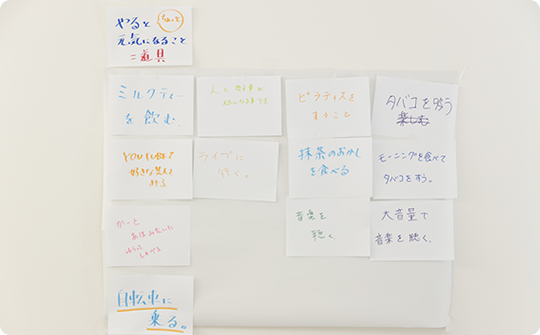 やると ちょっと
元気になること
＝道具
ミルクティー
を飲む。
ピラティスを
すること
タバコを吸う
楽しむ
YOUTUBEで
好きな
ライブに
行く。
抹茶のおかし
を食べる
モーニングを食べて
タバコをすう。
音楽を
聴く
大音量で
音楽を聴く。
自転車に
乗る。